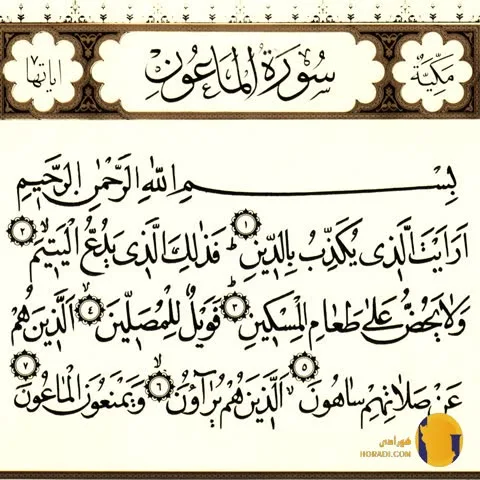 مكيّة
سُورَةُ الْمَاعُونِ
اياتها ٧
بِسْمِ اللّٰهِ الرَّحْمٰنِ الرَّحِيمِ
اَرَاَيْتَ الَّذِى يُكَذِّبُ بِالدِّينِ ١ فَذٰلِكَ الَّذِى يَدُعُّ الْيَتِيمَ ٢
وَلَا يَحُضُّ عَلٰى طَعَامِ الْمِسْكِينِ ٣ فَوَيْلٌ لِلْمُصَلِّينَ ٤ اَلَّذِينَ هُمْ
عَنْ صَلَاتِهِمْ سَاهُونَ ٥ اَلَّذِينَ هُمْ يُرَآؤُنَ ٦ وَيَمْنَعُونَ الْمَاعُونَ ٧
HORADI.COM